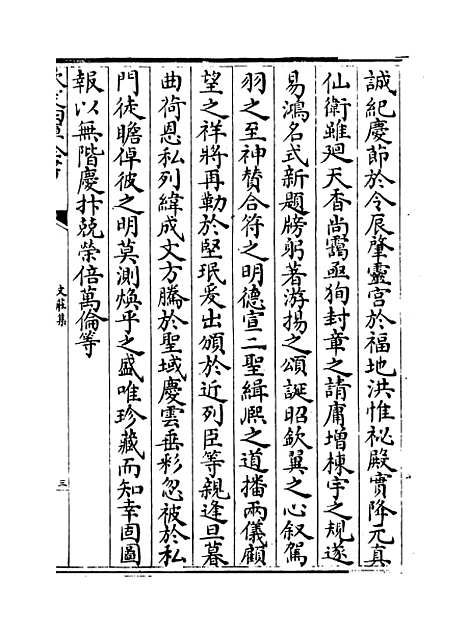 誠紀慶節於令辰肇靈宫於福地洪惟祕殿實降元真
仙衛雖廻天香尚靄亟狥封章之請庸增棟宇之規遂
易鴻名式新題牓躬著游揚之頌誕昭欽翼之心叙駕
羽之至神賛合符之明德宣二聖緝熈之道播兩儀顧
望之祥將再勒於堅珉爰出頒於近列臣等親逢旦暮
曲荷恩私列緯成文方騰於聖域慶雲垂彩忽被於私
門徒瞻倬彼之明莫測煥乎之盛唯珍藏而知幸固圖
報以無階慶抃兢榮倍萬倫等
文莊集
三